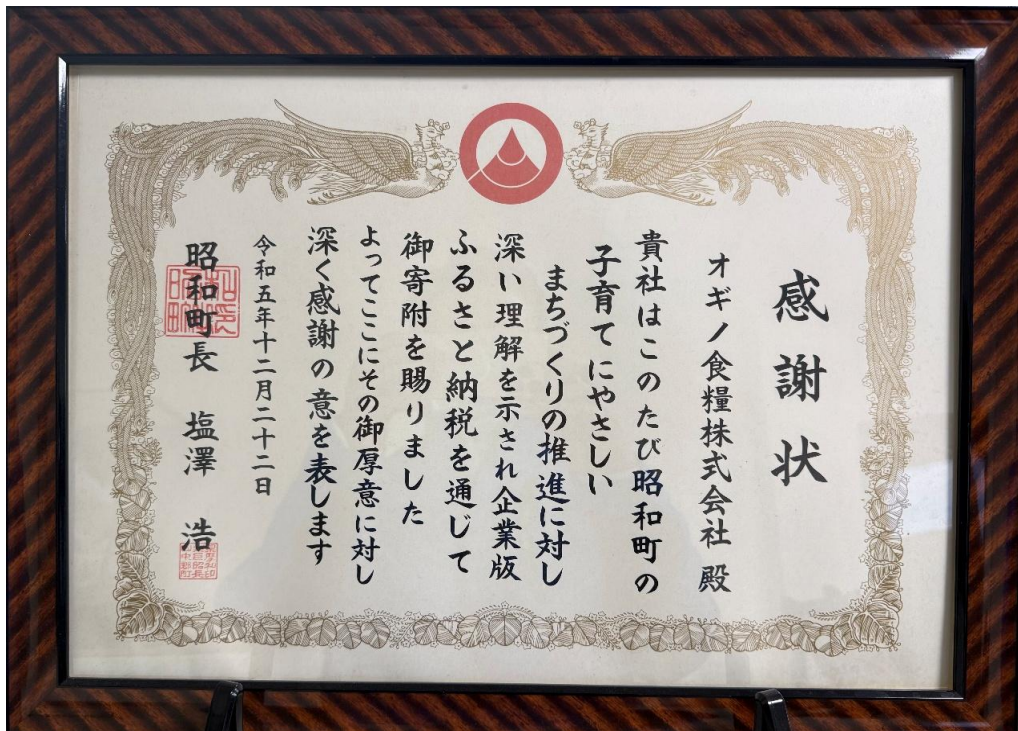 感謝状
オギノ食糧株式会社 殿
貴社はこのたび昭和町の
子育てにやさしい
まちづくりの推進に対し
深い理解を示され企業版
ふるさと納税を通じて
御寄附を賜りました
よってここにその御厚意に対し
深く感謝の意を表します
令和五年十二月二十二日
昭和町長 塩澤 浩